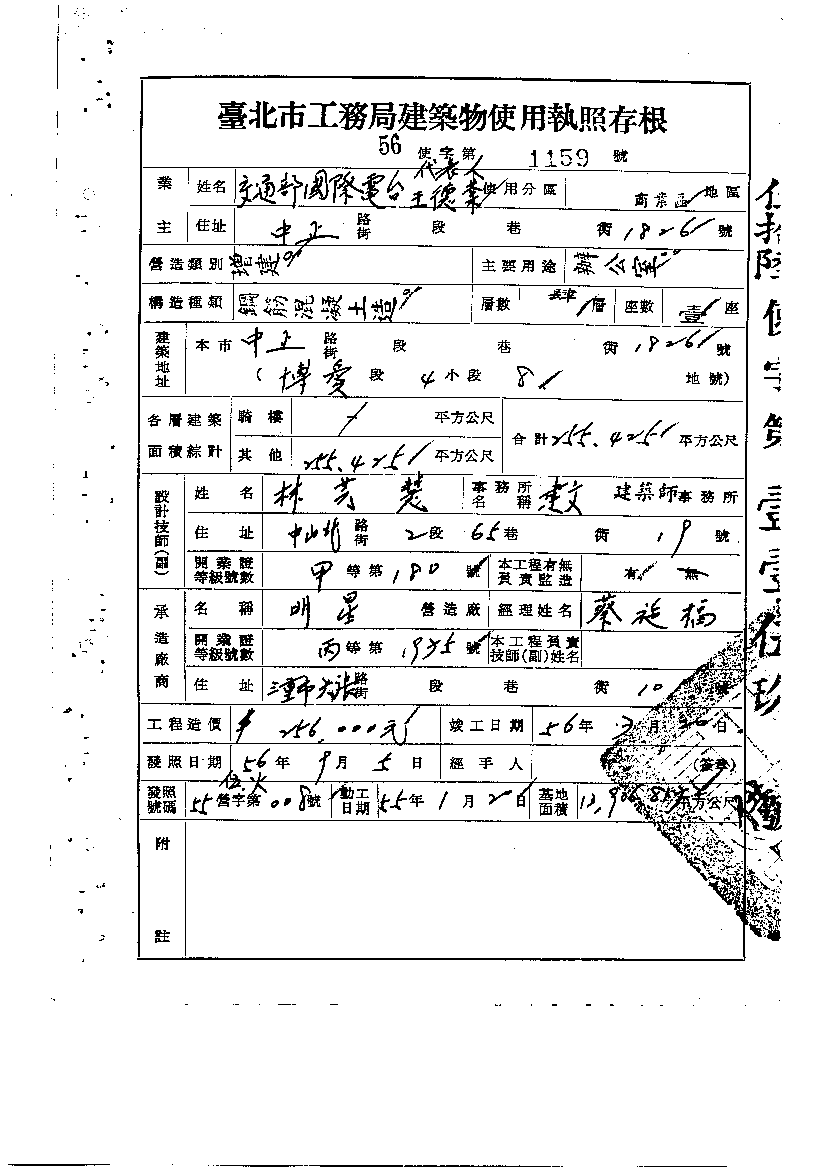 臺北市工務局建築物使用執照存根
56 使字第 1159 號
業主 姓名 交通部國際電台 代表人 王德 使用分區 商業區 地區
住址 中正 路街 段 巷 街 1826 號
營造類別 增建 主要用途 辦公室
構造種類 鋼筋混凝土造 層數 層 座數 壹 座
建築地址 本市 中正 路街 段 巷 街 1826 號
( 博愛 段 4 小段 81 地號)
各層建築面積綜計 騎樓 平方公尺 合計 255.425 平方公尺
其他 255.425 平方公尺
設計技師(副) 姓名 林 慧 事務所名稱 建築師事務所
住址 中山北 路街 2 段 65 巷 街 19 號
開業證等級號數 甲 等第 180 號 本工程有無負責監造 有 無
承造廠商 名稱 明星 營造廠 經理姓名 蔡 福
開業證等級號數 丙 等第 號 本工程負責技師(副)姓名
住址 路街 段 巷 街 10 號
工程造價 256,000元 竣工日期 56年 月 日
發照日期 56年 9月 5日 經手人 (簽章)
發照號碼 55 營字第 008 號 動工日期 55年 1月 2 日 基地面積 平方公尺
附註
伍拾陸使字第壹壹伍玖